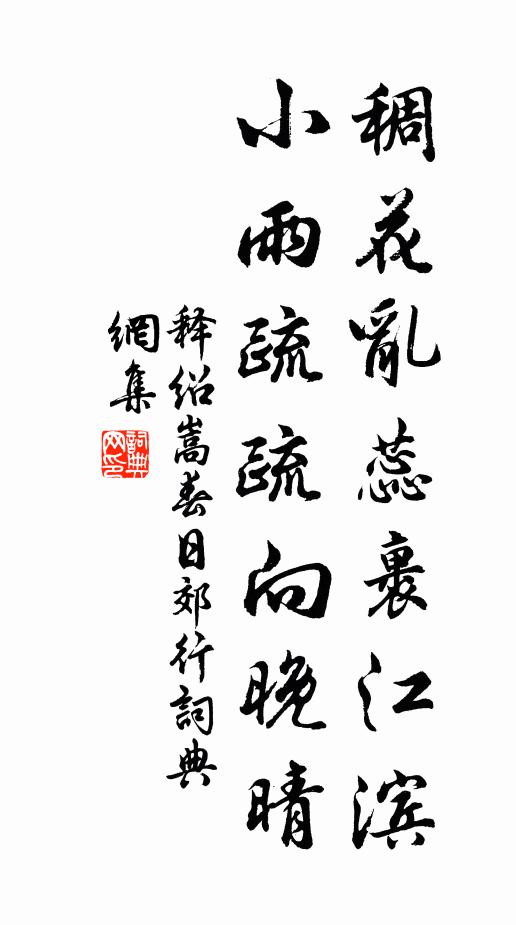 稠花亂蕊裹江滨
小雨疏疏向晚晴
释绍嵩春日郊行詞典
網集
詞典
网印